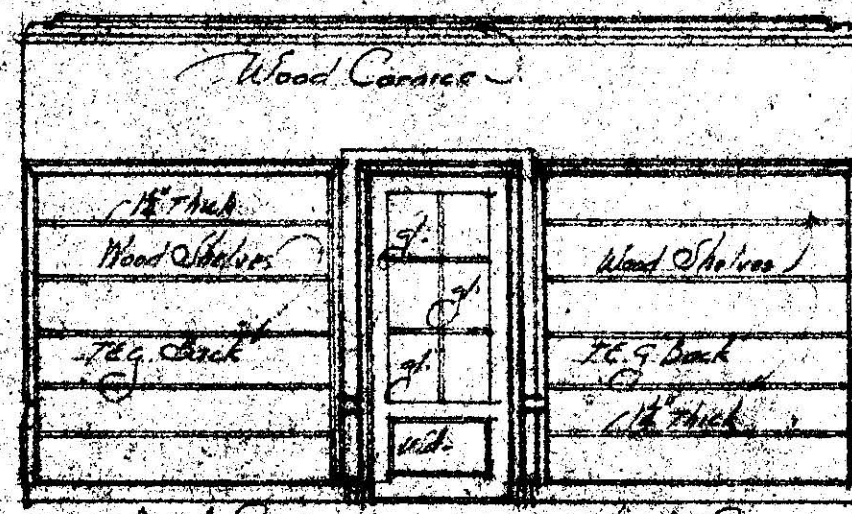 Wood Cornice
1½" Thick
Wood Shelves
gl.
gl.
gl.
T.&G. Back
wd.
Wood Shelves
T.&G. Back
1½" Thick